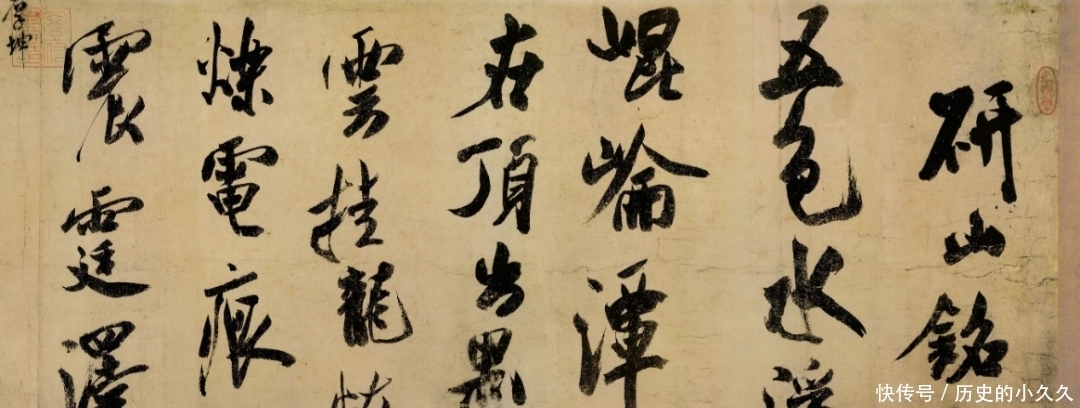 研山銘
五色水浮
崐崘潭
在頂出黑
雲挂龍
爍電痕
震霆澤
厚坤
快传号 / 历史的小久久